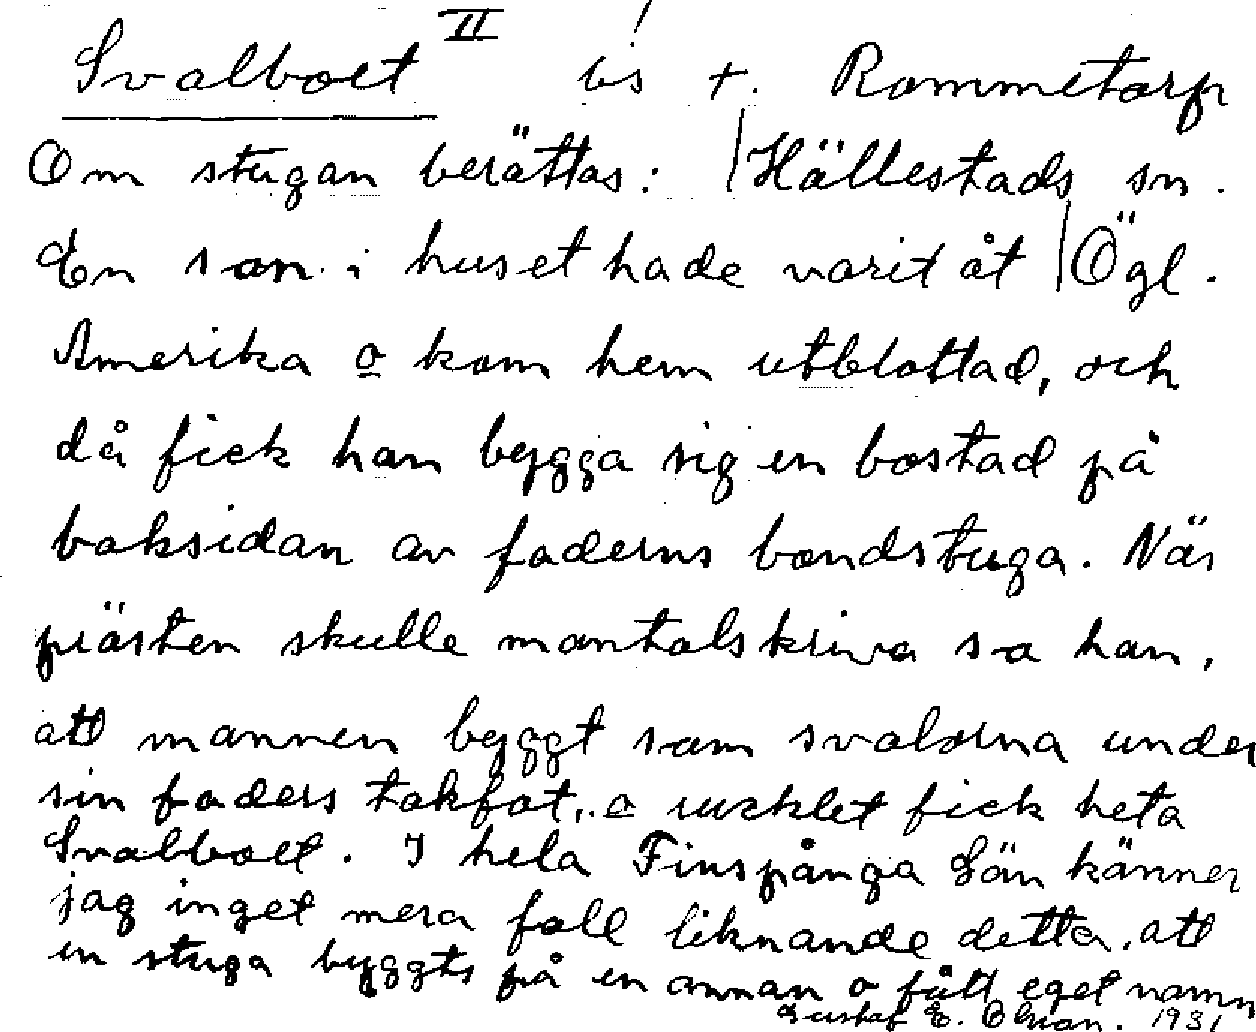 Svalboet II bs t. Rommetorp
Om stugan berättas: Hällestads sn.
En son i huset hade varit åt Ögl.
Amerika o kom hem utblottad, och
då fick han bygga sig en bostad på
baksidan av faderns bondstuga. När
prästen skulle mantalskriva sa han,
att mannen byggt som svalorna under
sin faders takfot, o rucklet fick heta
Svalboet. I hela Finspånga län känner
jag inget mera fall liknande detta, att
en stuga byggts på en annan o fått eget namn
Gustaf E. Olsson. 1931